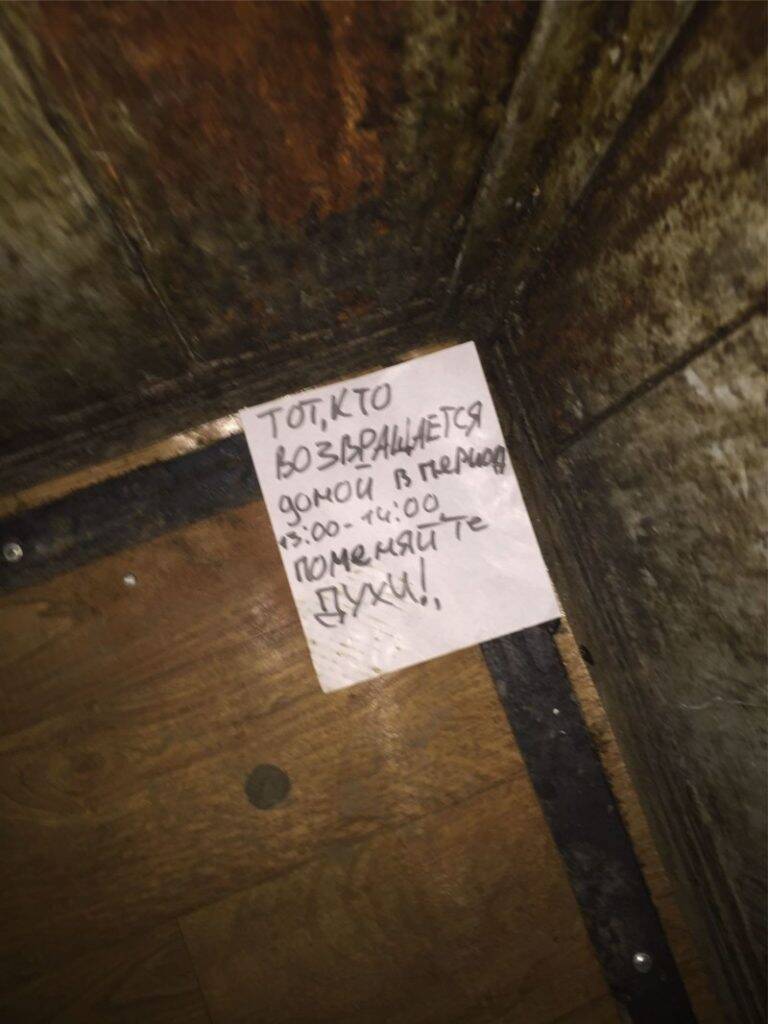 ТОТ, КТО
ВОЗВРАЩАЕТСЯ
домой в период
13:00-14:00
поменяйте
ДУХИ!,